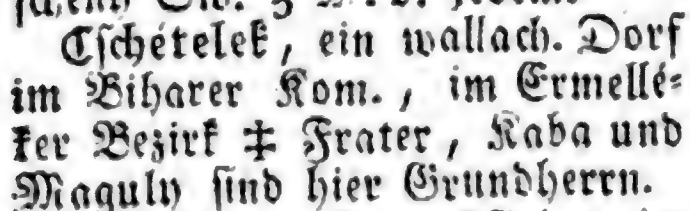 Cschételek, ein wallach. Dorf
im Biharer Kom., im Ermellé-
ker Bezirk ‡ Frater, Kaba und
Maguly sind hier Grundherrn.